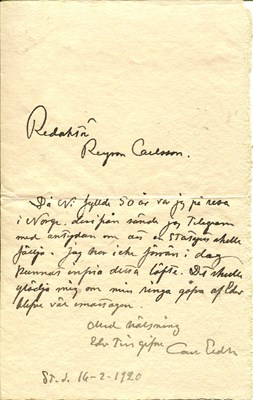 Redaktör
Reyron Carlsson.
Då Ni fyllde 50 år var jag på resa
i Norge, derifrån sände jag Telegram
med antydan om att en statyett skulle
följa. Jag har icke förrän i dag
kunnat infria detta löfte. Det skulle
glädja mig om min ringa gåfva af Eder
blefve väl emottagen.
Med hälsning
Eder Tillgifne
Carl
St. d. 16-2-1920